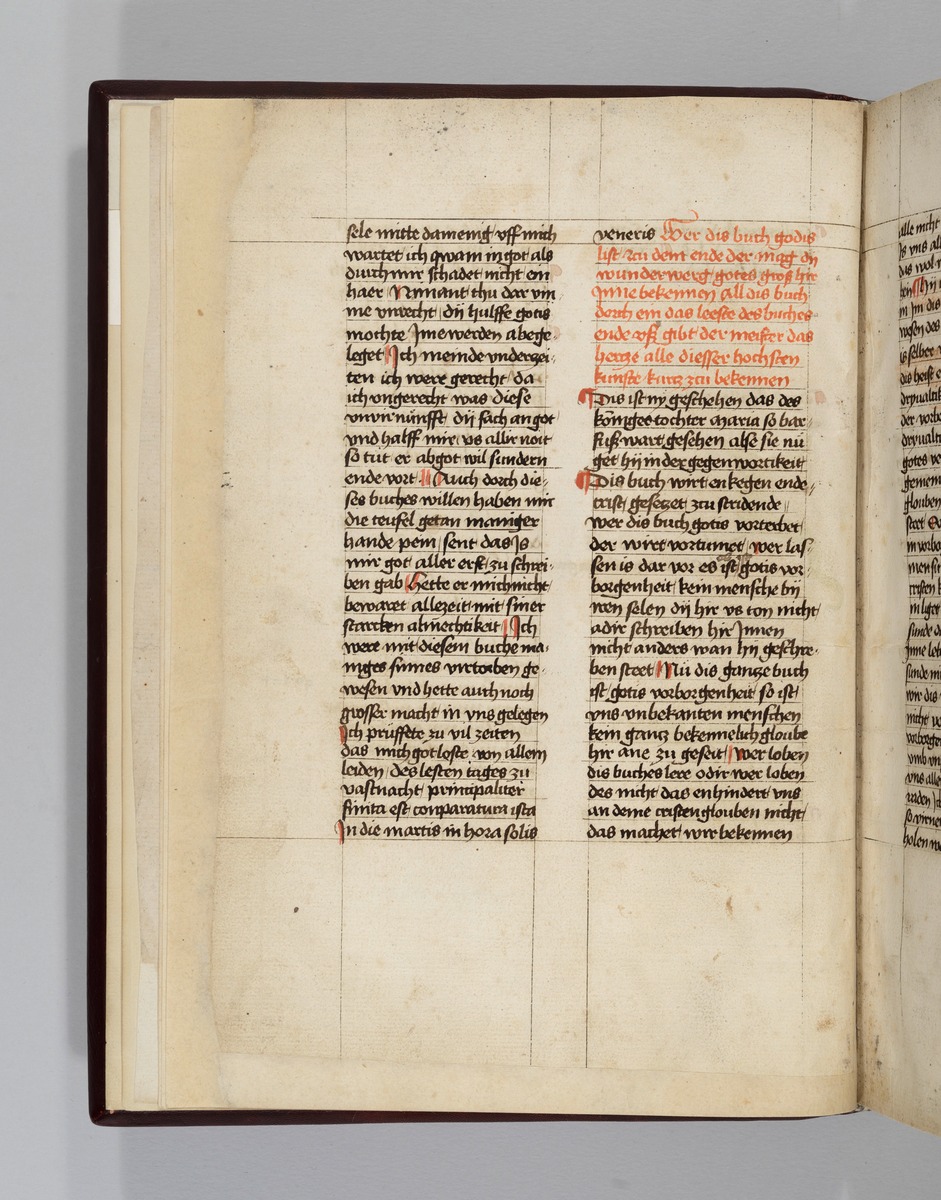 sele mitte damenig vff mich
wartet ich qwam in got als
durch mir schadet nicht ein
haer Nymant thu dar vm
me vnrecht dy hulffe gotis
mochte Jme werden abege
leget Ich meinde vnderzei
ten ich were gerecht da
ich vngerecht was diese
vnvirnunfft dy sach an got
vnd halff mir vs allir noit
so tut er ab got wil sundern
ende vort Auch dorch die
ses buches willen haben mir
die teufel getan maniger
hande pein sent das Js
mir got aller erst zu schrei
ben gab Hette er mich nicht
bewaret allezeit mit siner
starcken almechtikeit Ich
were mit diesem buche ma
niges sinnes virtorben ge
wesen vnd hette auch noch
grosser macht in vns gelegen
Ich pruffete zu vil zeiten
das mich got loste von allem
leiden des lesten tages zu
vastnacht principaliter
finita est conparatura ista
In die martis in hora solis
veneris Wer dis buch godis
list zcu dem ende der mag dy
wunderwerg gotes groß hir
Jnne bekennen All dis buch
dorch ein das leeste des buches
ende vß gibt der meister das
hertze alle diesser hochsten
kunste kurcz zcu bekennen
Dis ist ny geschehen das des
koniges tochter Maria so bar
fuß wart gesehen alse sie nu
get hy in der gegenwortikeit
Dis buch wirt enkegen ende
crist gesetzet zcu stridende
wer dis buch gotis vorterbet
der wirt vortumet wer las
sen is dar vor es ist gotis vor
borgenheit kein mensche by
iren selen dy hir vs ton nicht
adir schreiben hir Jnnen
nicht anders wan hy geschre
ben steet Nu dis gancze buch
ist gotis vorborgenheit so ist
vns vnbekanten menschen
kein gancz bekennelich gloube
hir ane zu geseit wer loben
dis buches lere odir wer loben
des nicht das enhindert vns
an deme cristen glouben nicht
das machet wir bekennen